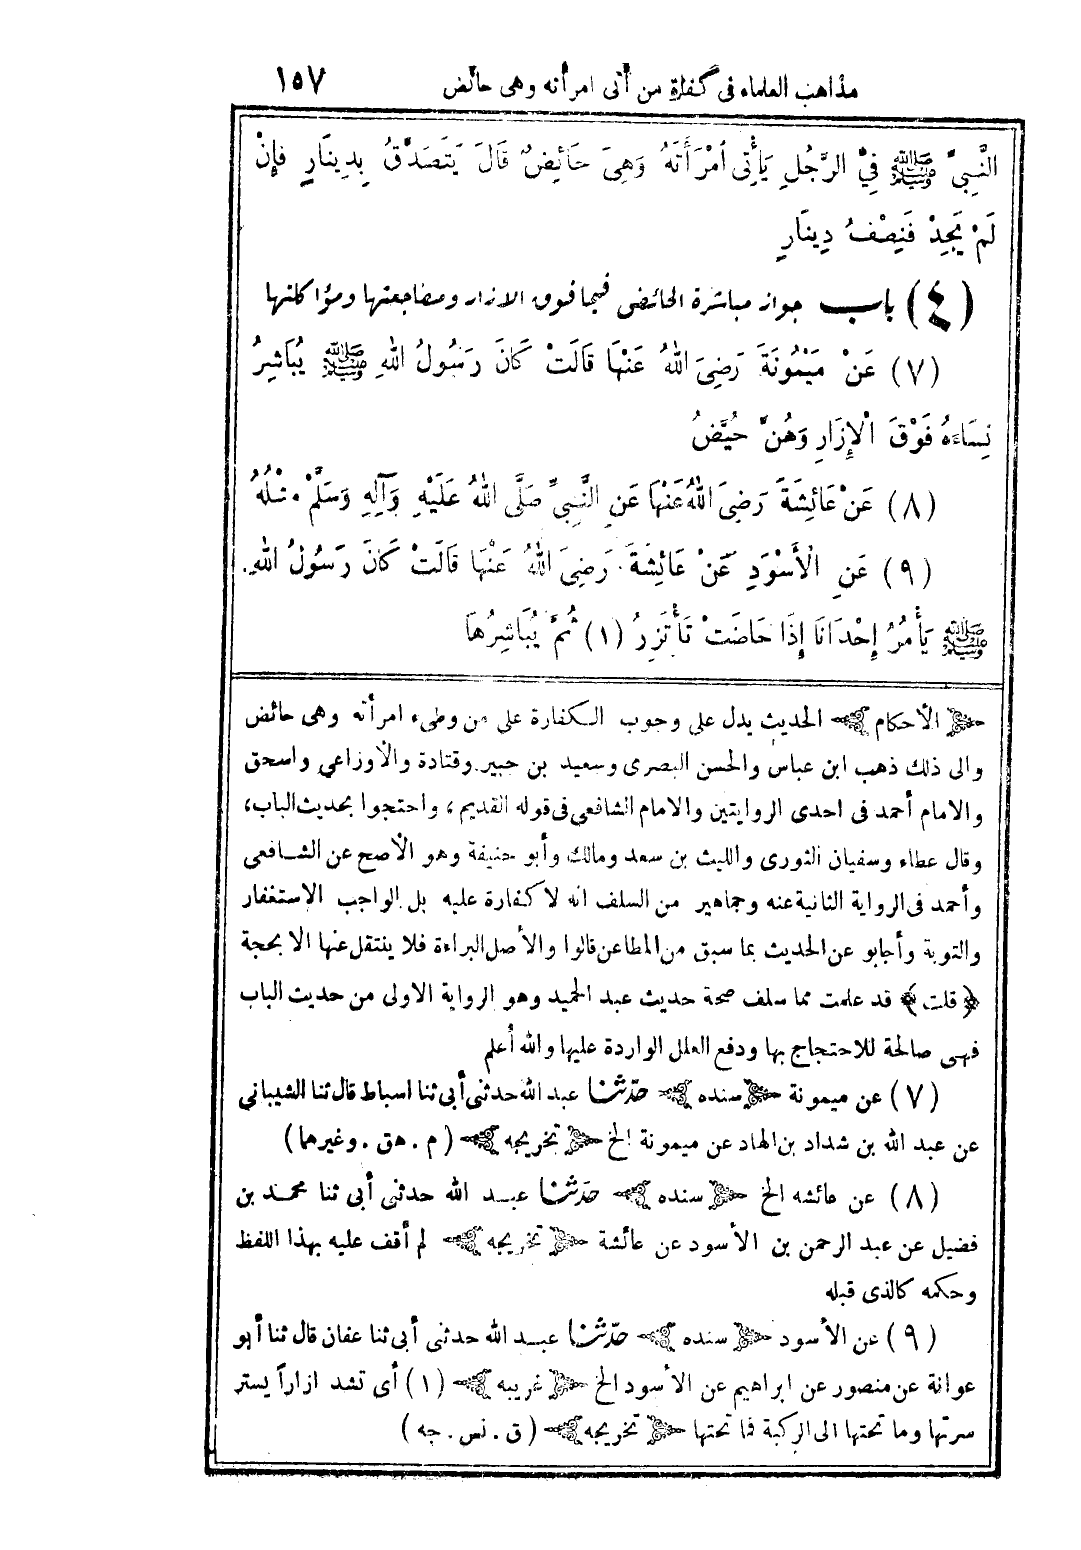 مذاهب العلماء فى كفارة من أتى امرأته وهى حائض ١٥٧
النَّبِىِّ ﷺ فِى الرَّجُلِ يَأْتِى امْرَأَتَهُ وَهِىَ حَائِضٌ قَالَ يَتَصَدَّقُ بِدِينَارٍ فَإِنْ
لَمْ يَجِدْ فَنِصْفُ دِينَارٍ
(٤) باب جواز مباشرة الحائض فيما فوق الازار ومضاجعتها ومؤاكلتها
(٧) عَنْ مَيْمُونَةَ رَضِىَ اللهُ عَنْهَا قَالَتْ كَانَ رَسُولُ اللهِ ﷺ يُبَاشِرُ
نِسَاءَهُ فَوْقَ الْإِزَارِ وَهُنَّ حُيَّضٌ
(٨) عَنْ عَائِشَةَ رَضِىَ اللهُ عَنْهَا عَنِ النَّبِىِّ صَلَّى اللهُ عَلَيْهِ وَآلِهِ وَسَلَّمْ مِثْلُهُ
(٩) عَنِ الْأَسْوَدِ عَنْ عَائِشَةَ رَضِىَ اللهُ عَنْهَا قَالَتْ كَانَ رَسُولُ اللهِ
ﷺ يَأْمُرُ إِحْدَانَا إِذَا حَاضَتْ تَأْتَزِرُ (١) ثُمَّ يُبَاشِرُهَا
﴿الأحكام﴾ الحديث يدل على وجوب الكفارة على من وطىء امرأته وهى حائض
والى ذلك ذهب ابن عباس والحسن البصرى وسعيد بن جبير وقتادة والأوزاعي واسحق
والامام أحمد فى احدى الروايتين والامام الشافعي فى قوله القديم، واحتجوا بحديث الباب،
وقال عطاء وسفيان الثورى والليث بن سعد ومالك وأبو حنيفة وهو الأصح عن الشافعى
وأحمد فى الرواية الثانية عنه وجماهير من السلف انه لا كفارة عليه بل الواجب الإستغفار
والتوبة وأجابو عن الحديث بما سبق من المطاعن قالوا والأصل البراءة فلا ينتقل عنها الا بحجة
﴿قلت﴾ قد علمت مما سلف صحة حديث عبد الحميد وهو الرواية الاولى من حديث الباب
فهى صالحة للاحتجاج بها ودفع العلل الواردة عليها والله أعلم
(٧) عن ميمونة ﴿سنده﴾ حدّثنا عبد الله حدثنى أبى ثنا اسباط قال ثنا الشيبانى
عن عبد الله بن شداد بن الهاد عن ميمونة الخ ﴿تخريجه﴾ (م . هق . وغيرهما)
(٨) عن عائشه الخ ﴿سنده﴾ حدّثنا عبد الله حدثنى أبى ثنا محمد بن
فضيل عن عبد الرحمن بن الأسود عن عائشة ﴿تخريجه﴾ لم أقف عليه بهذا اللفظ
وحكمه كالذى قبله
(٩) عن الأسود ﴿سنده﴾ حدّثنا عبد الله حدثنى أبى ثنا عفان قال ثنا أبو
عوانة عن منصور عن ابراهيم عن الأسود الخ ﴿غريبه﴾ (١) أى تشد ازاراً يستر
سرتها وما تحتها الى الركبة فما تحتها ﴿تخريجه﴾ (ق . نس . جه)